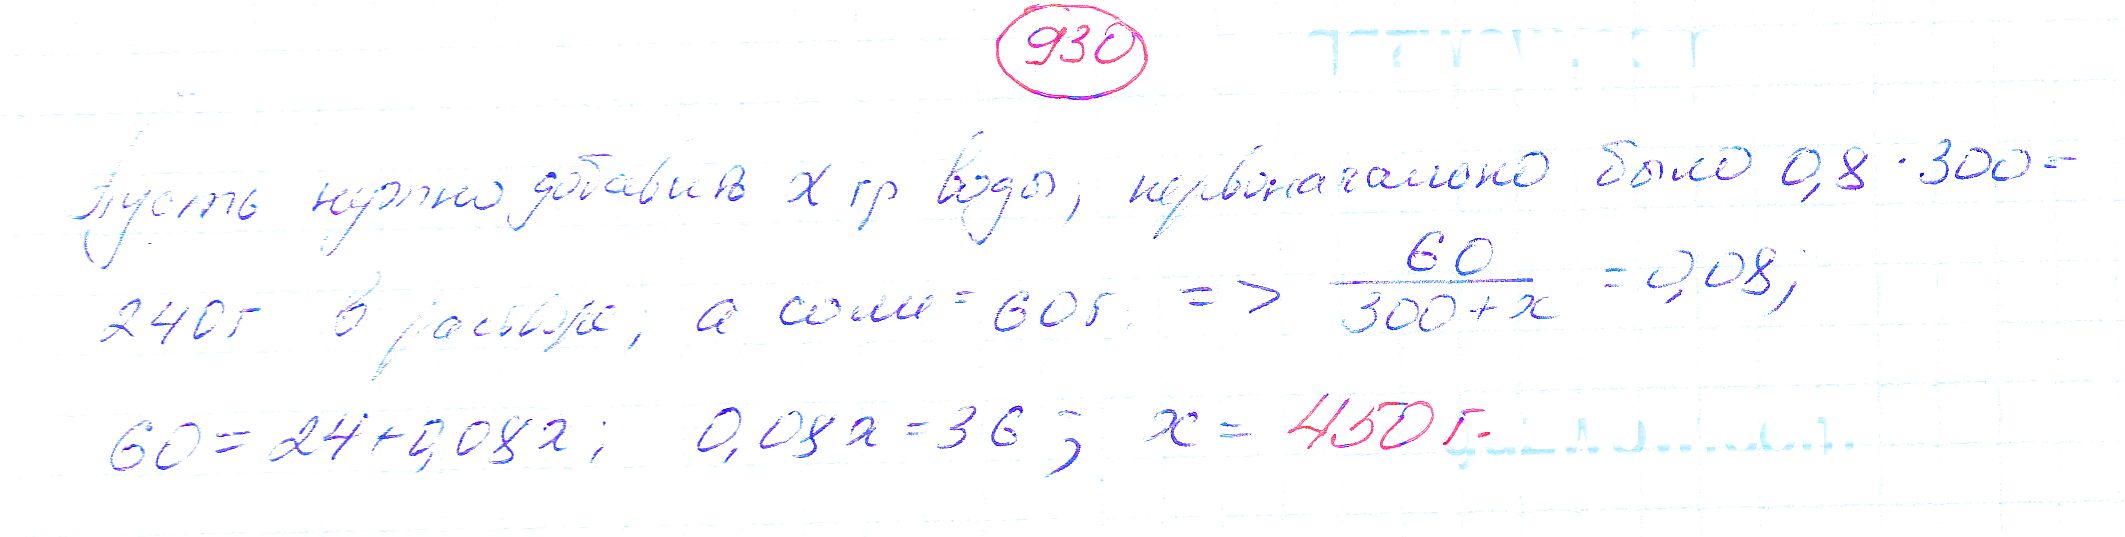 930
Пусть нужно добавить x гр воды, первоначально было 0,8 · 300 =
240г в растворе, а соли = 60г. => 60/(300+x) = 0,08;
60 = 24 + 0,08x; 0,08x = 36; x = 450 г.